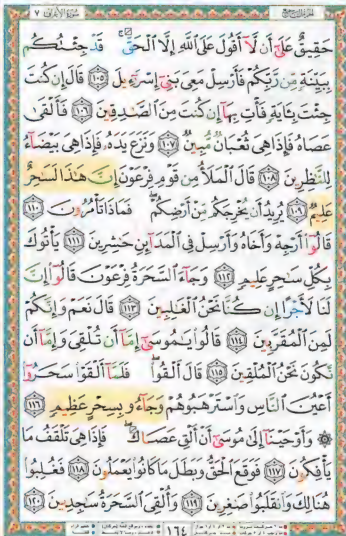 سورة الأعراف ٧
الجزء التاسع
حَقِيقٌ عَلَىٰٓ أَن لَّآ أَقُولَ عَلَى ٱللَّهِ إِلَّا ٱلْحَقَّ ۚ قَدْ جِئْتُكُم
بِبَيِّنَةٍ مِّن رَّبِّكُمْ فَأَرْسِلْ مَعِىَ بَنِىٓ إِسْرَٰٓءِيلَ ۝١٠٥ قَالَ إِن كُنتَ
جِئْتَ بِـَٔايَةٍ فَأْتِ بِهَآ إِن كُنتَ مِنَ ٱلصَّٰدِقِينَ ۝١٠٦ فَأَلْقَىٰ
عَصَاهُ فَإِذَا هِىَ ثُعْبَانٌ مُّبِينٌ ۝١٠٧ وَنَزَعَ يَدَهُۥ فَإِذَا هِىَ بَيْضَآءُ
لِلنَّٰظِرِينَ ۝١٠٨ قَالَ ٱلْمَلَأُ مِن قَوْمِ فِرْعَوْنَ إِنَّ هَٰذَا لَسَٰحِرٌ
عَلِيمٌ ۝١٠٩ يُرِيدُ أَن يُخْرِجَكُم مِّنْ أَرْضِكُمْ ۖ فَمَاذَا تَأْمُرُونَ ۝١١٠
قَالُوٓا۟ أَرْجِهْ وَأَخَاهُ وَأَرْسِلْ فِى ٱلْمَدَآئِنِ حَٰشِرِينَ ۝١١١ يَأْتُوكَ
بِكُلِّ سَٰحِرٍ عَلِيمٍ ۝١١٢ وَجَآءَ ٱلسَّحَرَةُ فِرْعَوْنَ قَالُوٓا۟ إِنَّ
لَنَا لَأَجْرًا إِن كُنَّا نَحْنُ ٱلْغَٰلِبِينَ ۝١١٣ قَالَ نَعَمْ وَإِنَّكُمْ
لَمِنَ ٱلْمُقَرَّبِينَ ۝١١٤ قَالُوا۟ يَٰمُوسَىٰٓ إِمَّآ أَن تُلْقِىَ وَإِمَّآ أَن
نَّكُونَ نَحْنُ ٱلْمُلْقِينَ ۝١١٥ قَالَ أَلْقُوا۟ ۖ فَلَمَّآ أَلْقَوْا۟ سَحَرُوٓا۟
أَعْيُنَ ٱلنَّاسِ وَٱسْتَرْهَبُوهُمْ وَجَآءُو بِسِحْرٍ عَظِيمٍ ۝١١٦
۞ وَأَوْحَيْنَآ إِلَىٰ مُوسَىٰٓ أَنْ أَلْقِ عَصَاكَ ۖ فَإِذَا هِىَ تَلْقَفُ مَا
يَأْفِكُونَ ۝١١٧ فَوَقَعَ ٱلْحَقُّ وَبَطَلَ مَا كَانُوا۟ يَعْمَلُونَ ۝١١٨ فَغُلِبُوا۟
هُنَالِكَ وَٱنقَلَبُوا۟ صَٰغِرِينَ ۝١١٩ وَأُلْقِىَ ٱلسَّحَرَةُ سَٰجِدِينَ ۝١٢٠
١٦٤